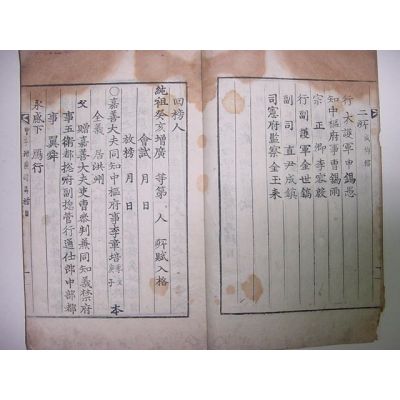 二所
行大護軍申錫愚
知中樞府事曺錫雨
宗正卿李容殷
行副護軍金世鎬
副司直尹成鎮
司憲府監察金玉来
回榜人
純祖癸亥增廣 等第 人 所賦入格
會試 月 日
放榜 月 日
〇嘉善大夫同知中樞府事李章培 庚子 本
全義 居洪州
父 贈嘉善大夫吏曹叅判兼同知義禁府
事五衛都捴府副捴管行通仕郎中部都
事 翼舜
永感下 鴈行